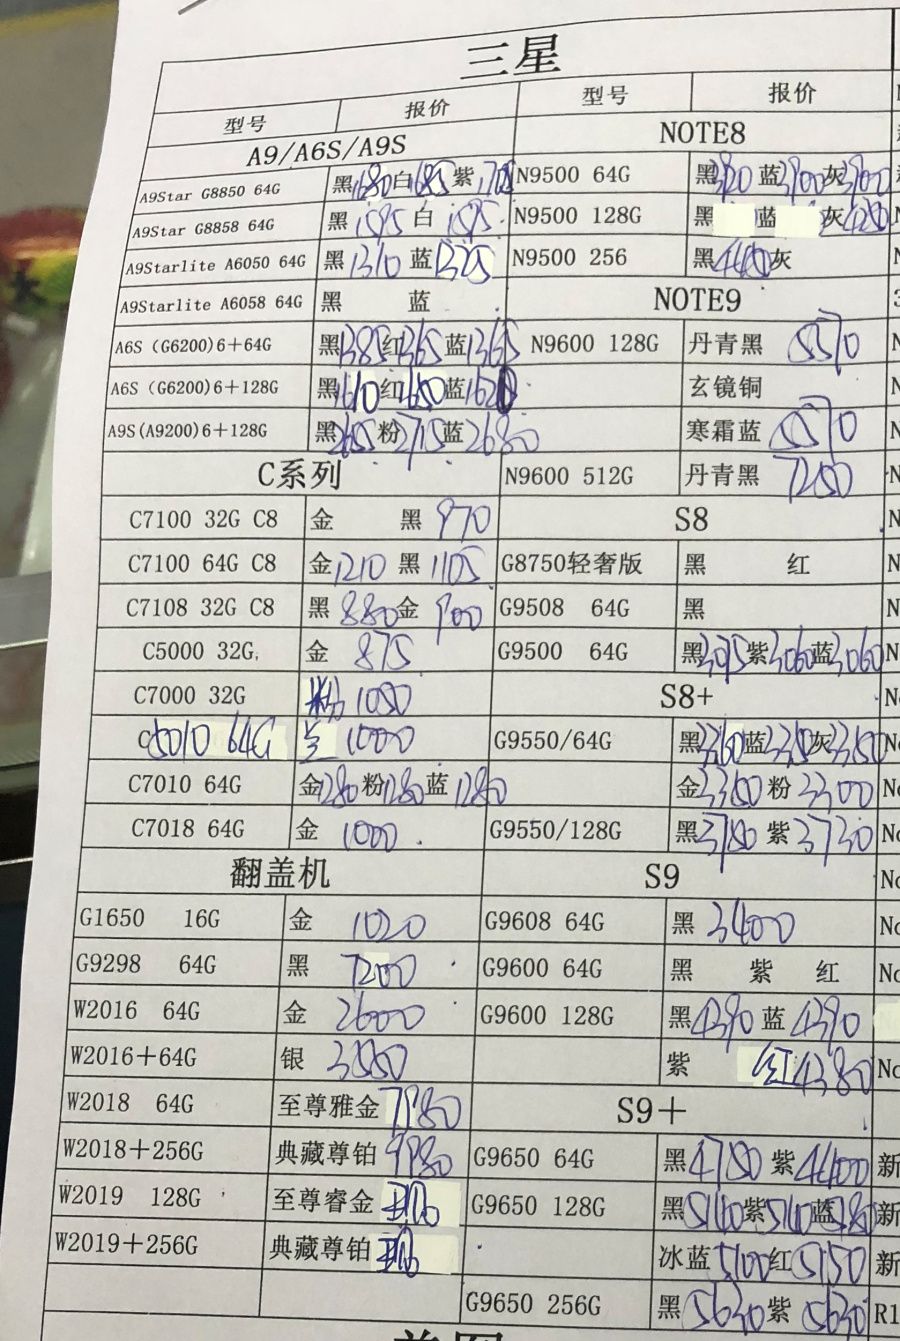 三星
型号 报价 型号 报价
A9/A6S/A9S NOTE8
A9Star G8850 64G 黑1680白1685紫170 N9500 64G 黑3920蓝3900灰3900
A9Star G8858 64G 黑1595白1595 N9500 128G 黑 蓝 灰4250
A9Starlite A6050 64G 黑1310蓝1325 N9500 256 黑4400灰
A9Starlite A6058 64G 黑 蓝 NOTE9
A6S (G6200)6+64G 黑1385红1365蓝1365 N9600 128G 丹青黑 5570
A6S (G6200)6+128G 黑1610红1650蓝1620 玄镜铜
A9S(A9200)6+128G 黑2655粉2715蓝2680 寒霜蓝 5570
C系列 N9600 512G 丹青黑 7250
C7100 32G C8 金 黑 970 S8
C7100 64G C8 金1210 黑 1105 G8750轻奢版 黑 红
C7108 32G C8 黑 880金 900 G9508 64G 黑
C5000 32G 金 875 G9500 64G 黑3095紫3060蓝3060
C7000 32G 粉1050 S8+
C5010 64G 1000 G9550/64G 黑3360蓝3350灰3350
C7010 64G 金1280粉1280蓝1280 金3350粉3300
C7018 64G 金 1000 G9550/128G 黑3780紫3730
翻盖机 S9
G1650 16G 金 1020 G9608 64G 黑 3400
G9298 64G 黑 7200 G9600 64G 黑 紫 红
W2016 64G 金 2600 G9600 128G 黑4390蓝4390
W2016+64G 银 3550 紫 红4380
W2018 64G 至尊雅金7980 S9+
W2018+256G 典藏尊铂9980 G9650 64G 黑4750紫4400 新
W2019 128G 至尊睿金 G9650 128G 黑5140紫5140蓝 新
W2019+256G 典藏尊铂 冰蓝5100红5150 新
G9650 256G 黑5630紫5630 R1